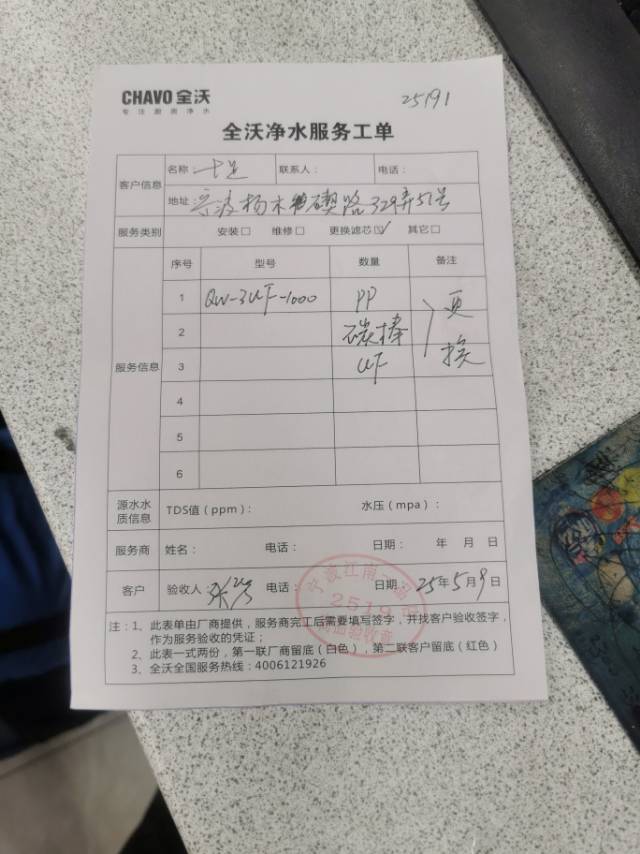 CHAVO 全沃
专注厨房净水
25191
全沃净水服务工单
客户信息
名称 十足 联系人： 电话：
地址 宁波杨木碶路329弄51号
服务类别 安装□ 维修□ 更换滤芯☑ 其它□
服务信息
序号 型号 数量 备注
1 QW-3UF-1000 PP 更
2 碳棒
3 UF 换
4
5
6
源水水质信息 TDS值（ppm）： 水压（mpa）：
服务商 姓名： 电话： 日期： 年 月 日
客户 验收人： 电话： 日期：25年5月9日
宁波江南
2519
验收章
注：1、此表单由厂商提供，服务商完工后需要填写签字，并找客户验收签字，
作为服务验收的凭证；
2、此表一式两份，第一联厂商留底（白色），第二联客户留底（红色）
3、全沃全国服务热线：4006121926